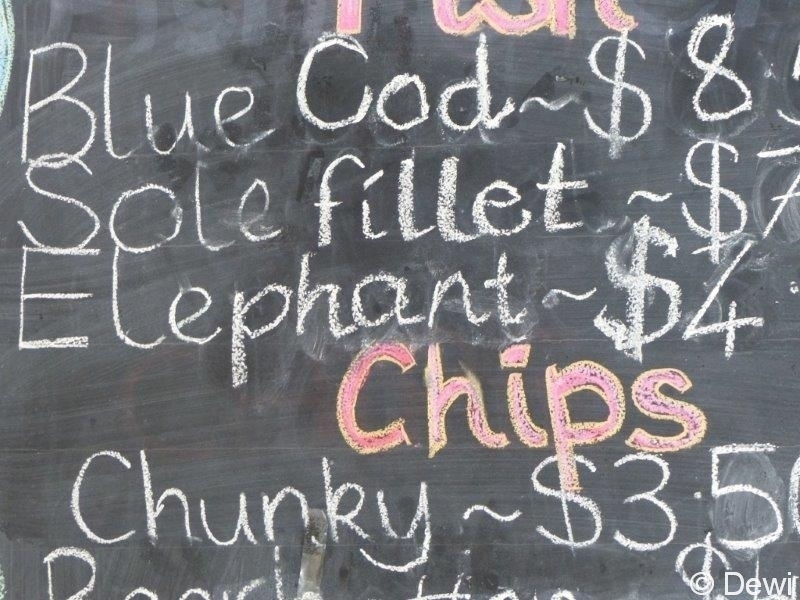 Fish
Blue Cod ~ $8
Sole fillet ~ $7
Elephant ~ $4
Chips
Chunky ~ $3.50
© Dewi